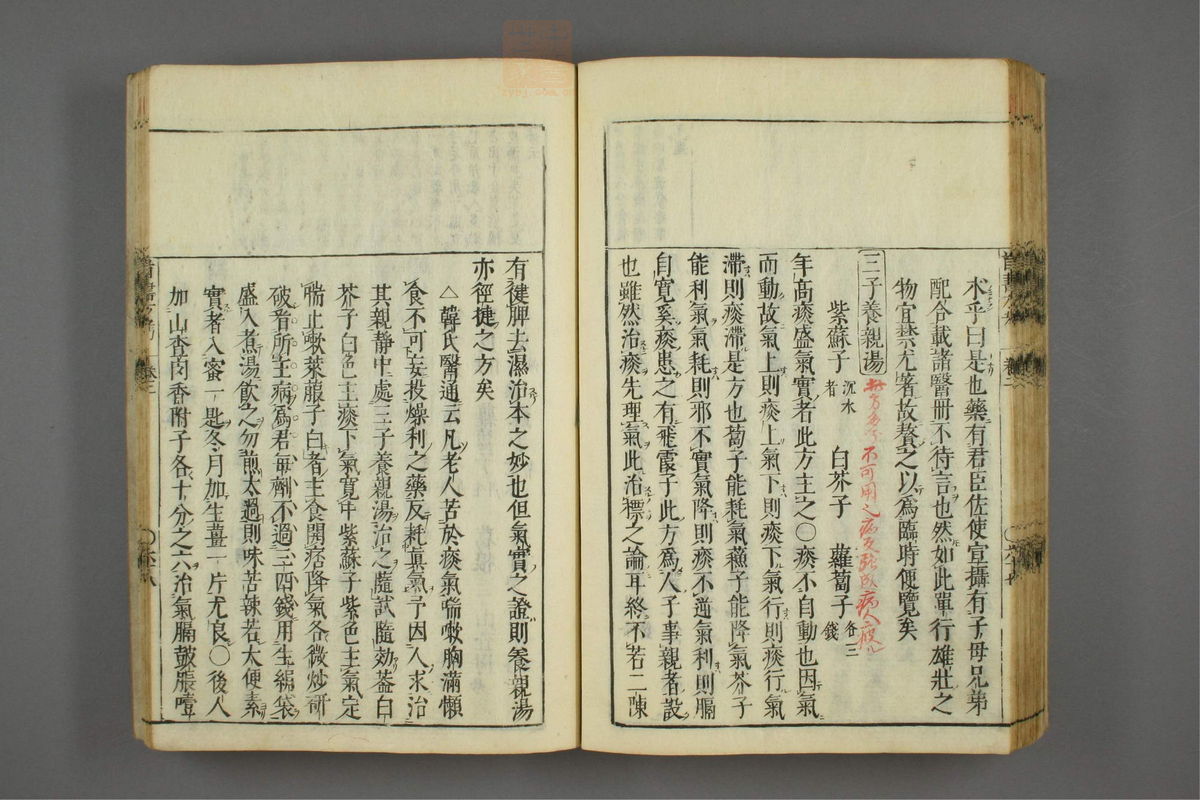 朮乎曰是也藥有君臣佐使宣攝有子母兄弟
配合載諸醫冊不待言也然如此單行雄壯之
物宜禁尤著故贅之以爲臨時便覽矣
三子養親湯
不可用之
紫蘇子 沉水者 白芥子 蘿蔔子 各三錢
年高痰盛氣實者此方主之〇痰不自動也因氣
而動故氣上則痰上氣下則痰下氣行則痰行氣
滯則痰滯是方也蔔子能耗氣蘇子能降氣芥子
能利氣氣耗則邪不實氣降則痰不逆氣利則膈
自寬奚痰患之有飛霞子此方爲人子事親者設
也雖然治痰先理氣此治標之論耳終不若二陳
有健脾去濕治本之妙也但氣實之證則養親湯
亦徑捷之方矣
△韓氏醫通云凡老人苦於痰氣喘嗽胸滿懶
食不可妄投燥利之藥反耗眞氣予因人求治
其親靜中處三子養親湯治之隨試隨効蓋白
芥子白色主痰下氣寬中紫蘇子紫色主氣定
喘止嗽萊菔子白者主食開痞降氣各微炒研
破看所主病爲君每劑不過三四錢用生絹袋
盛入煮湯飲之勿煎太過則味苦辣若大便素
實者入蜜一匙冬月加生薑一片尤良〇後人
加山査肉香附子各十分之六治氣膈鼓脹噎